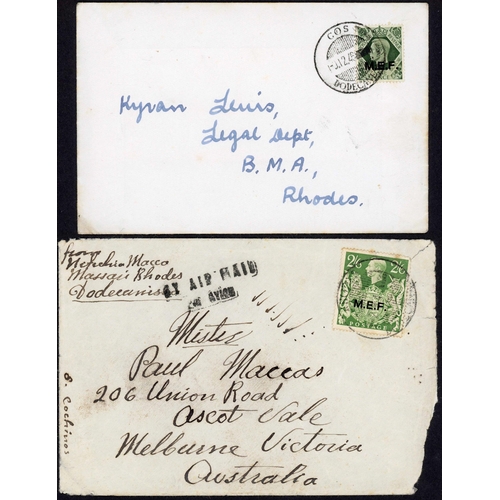 COS
M.E.F.
DODECANESE
Kyran Lewis,
Legal Dept,
B.M.A,
Rhodes.
from
Macco
Massari Rhodes
Dodecanis
BY AIR MAIL
Par Avion
2/6 2/6
M.E.F.
POSTAGE
Mister
Paul Maccas
206 Union Road
Ascot Vale
Melburne Victoria
Australia